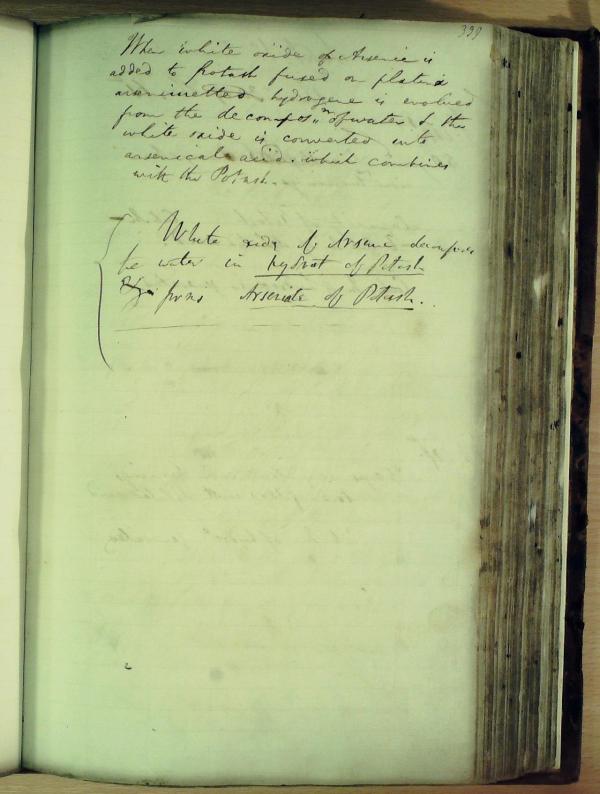 339
When white oxide of Arsenic is
added to Potash fused on platina
arseniuretted hydrogene is evolved
from the decompos.n of water & the
white oxide is converted into
arsenical acid. which combines
with the Potash.
White oxide of Arsenic decomposes
the water in hydrat of Potash
& forms Arseniate of Potash.